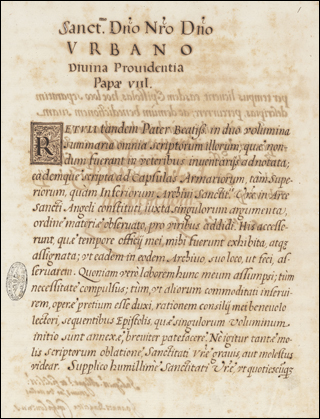 Sanct.^mo D̄no Nr̄o Dn̄o
VRBANO
Diuina Prouidentia
Papæ VIII.
RETVLI tandem Pater Beatiss.^e in duo volumina
summaria omnia scriptorum illorum, quæ non-
dum fuerant in veteribus inuentarijs adnotata;
eademque scripta ad Capsulas Armariorum, tam Supe-
riorum, quam Inferiorum Archiui Sanctit.^is V̄ræ in Arce
Sancti Angeli constituti, iuxta singulorum argumenta,
ordine materiæ obseruato, pro viribus addidi. His accesse-
runt, quæ tempore officij mei mihi fuerunt exhibita, atq3
assignata; vt eadem in eodem Archiuo suo loco, ut feci, as-
seruarem. Quoniam vero laborem hunc meum assumpsi; tùm
necessitate compulsus; tùm, vt aliorum commoditati inserui-
rem, operæ pretium esse duxi, rationem consilij mei beneuolo
lectori, sequentibus Epistolis, quæ singulorum Voluminum
initio sunt annexæ, breuiter patefacere. Ne igitur tantæ mo-
lis scriptorum oblatione, Sanctitati V̄ræ grauis, aut molestus
videar. Supplico humillimè Sanctitati V̄ræ, vt quotiescūq3